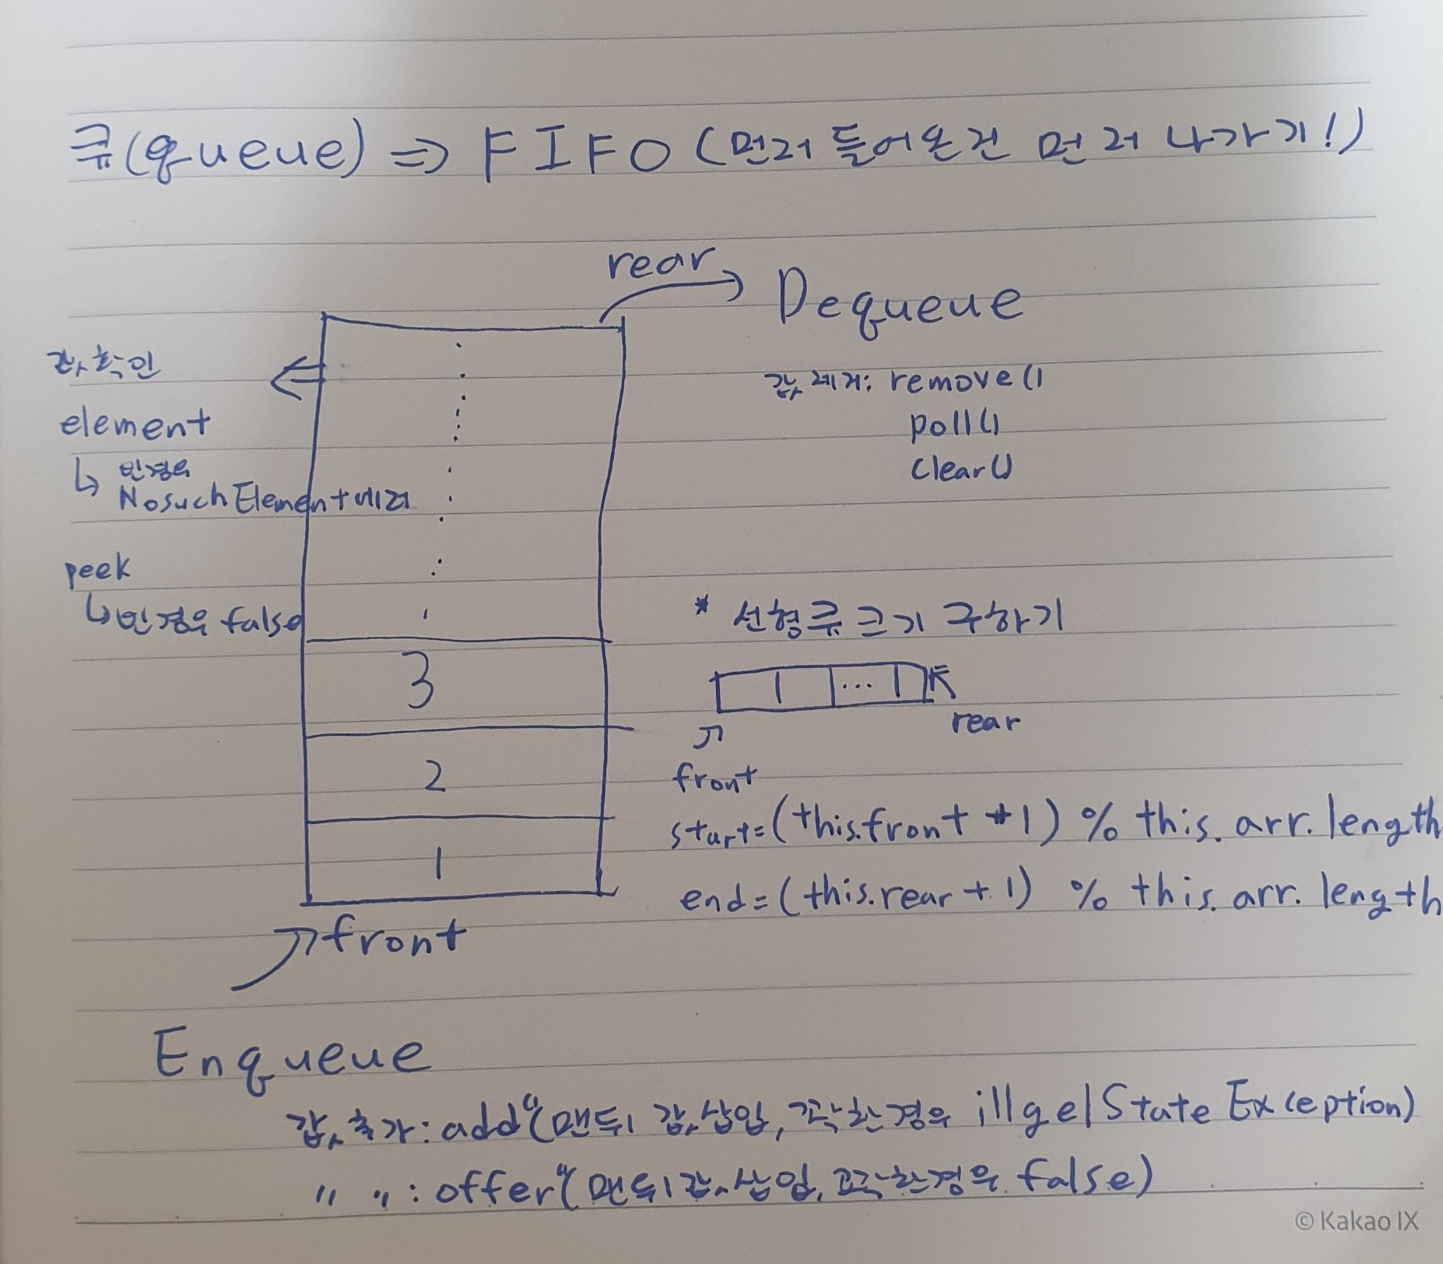 큐(queue) => FIFO (먼저 들어온건 먼저 나가기!)
rear
Dequeue
값 제거: remove()
poll()
clear()
값 확인
element
↳ 빈경우
NosuchElement에러
peek
↳ 빈경우 false
3
2
1
front
* 선형큐 크기 구하기
...
rear
front
start=(this.front +1) % this.arr.length
end=(this.rear + 1) % this.arr.length
Enqueue
값 추가: add"(맨뒤 값 삽입, 꽉찬경우 illgelStateException)
" " : offer"(맨뒤 값 삽입, 꽉찬경우 false)
© Kakao IX